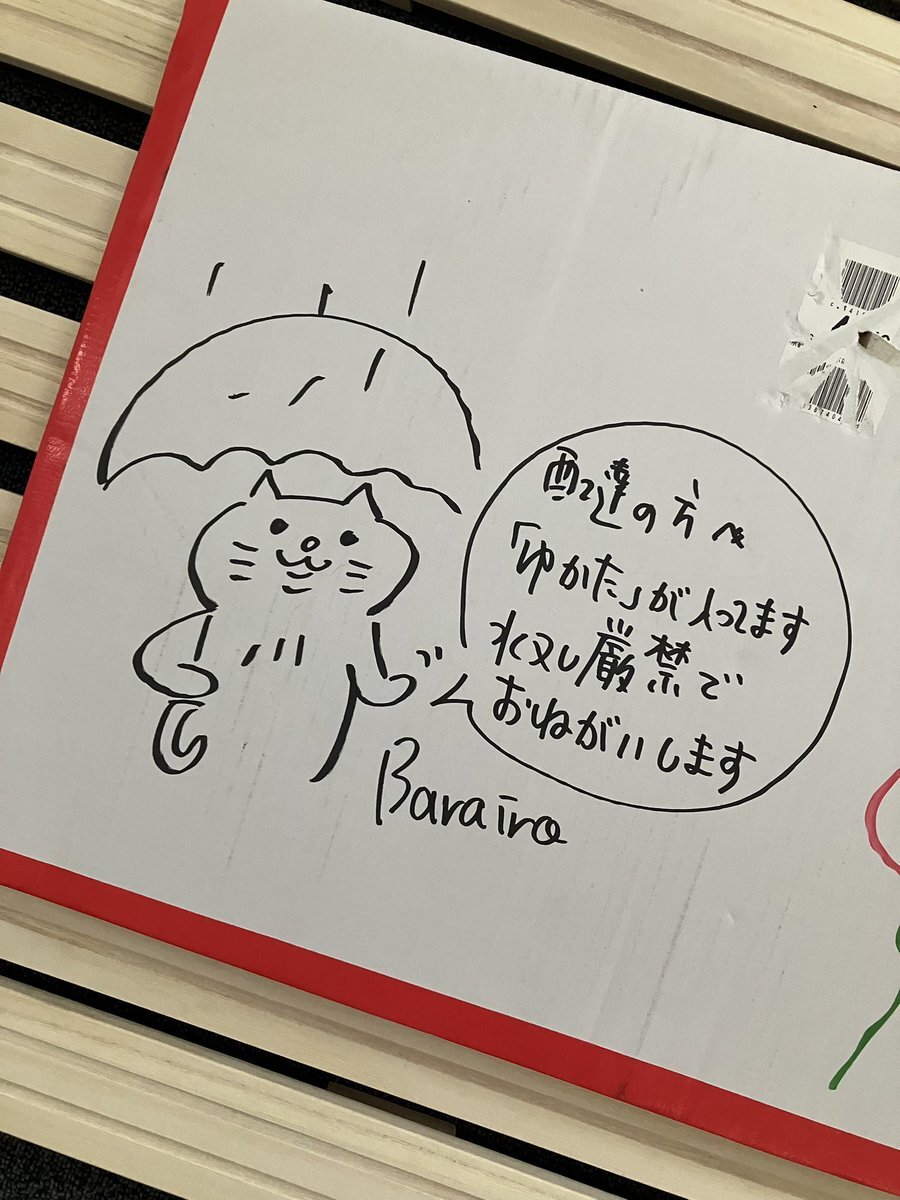 配達の方へ
「ゆかた」が入ってます
水又し厳禁で
おねがいします
Barairo